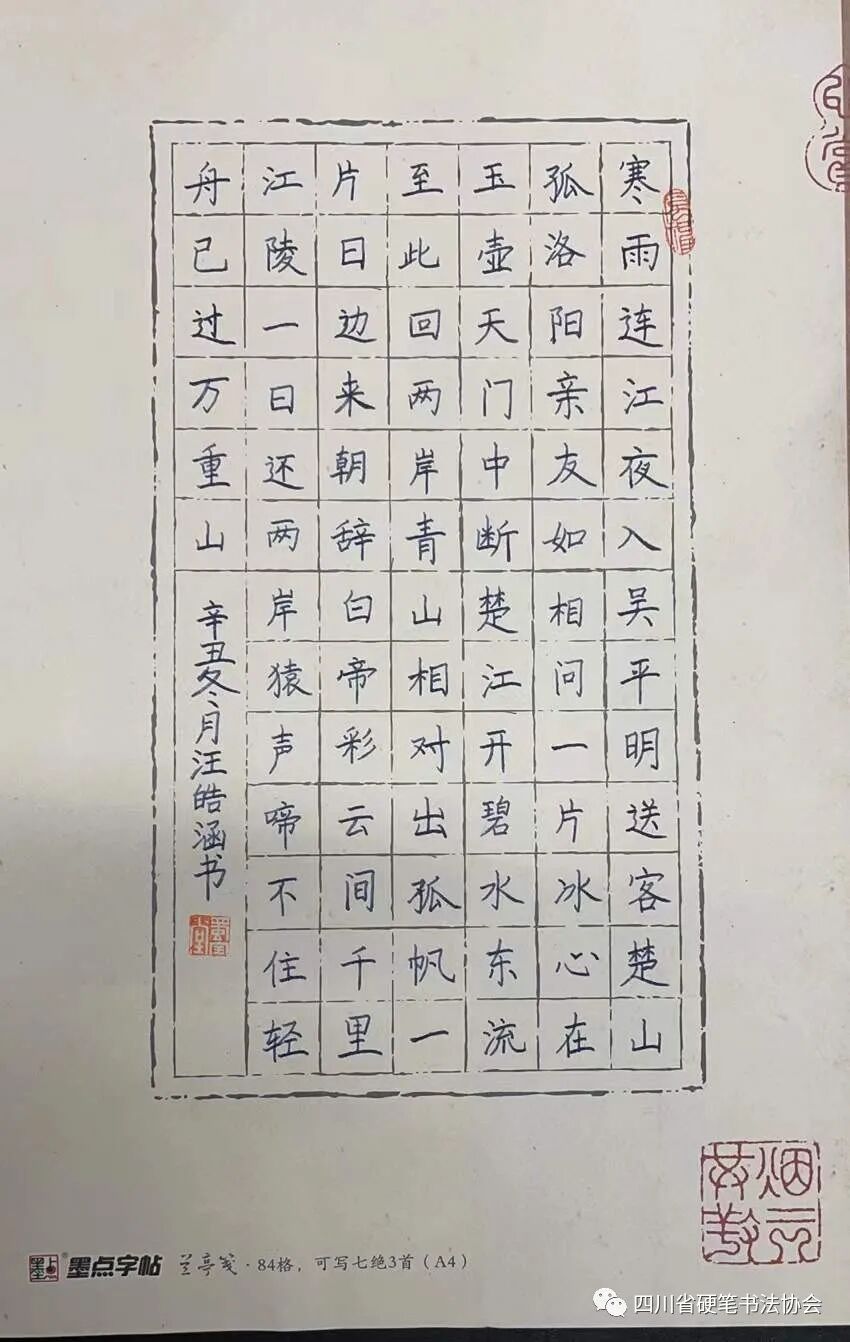 寒雨连江夜入吴平明送客楚山
孤洛阳亲友如相问一片冰心在
玉壶天门中断楚江开碧水东流
至此回两岸青山相对出孤帆一
片日边来朝辞白帝彩云间千里
江陵一日还两岸猿声啼不住轻
舟已过万重山
辛丑冬月汪皓涵书
墨点字帖 兰亭笺·84格，可写七绝3首（A4）
四川省硬笔书法协会